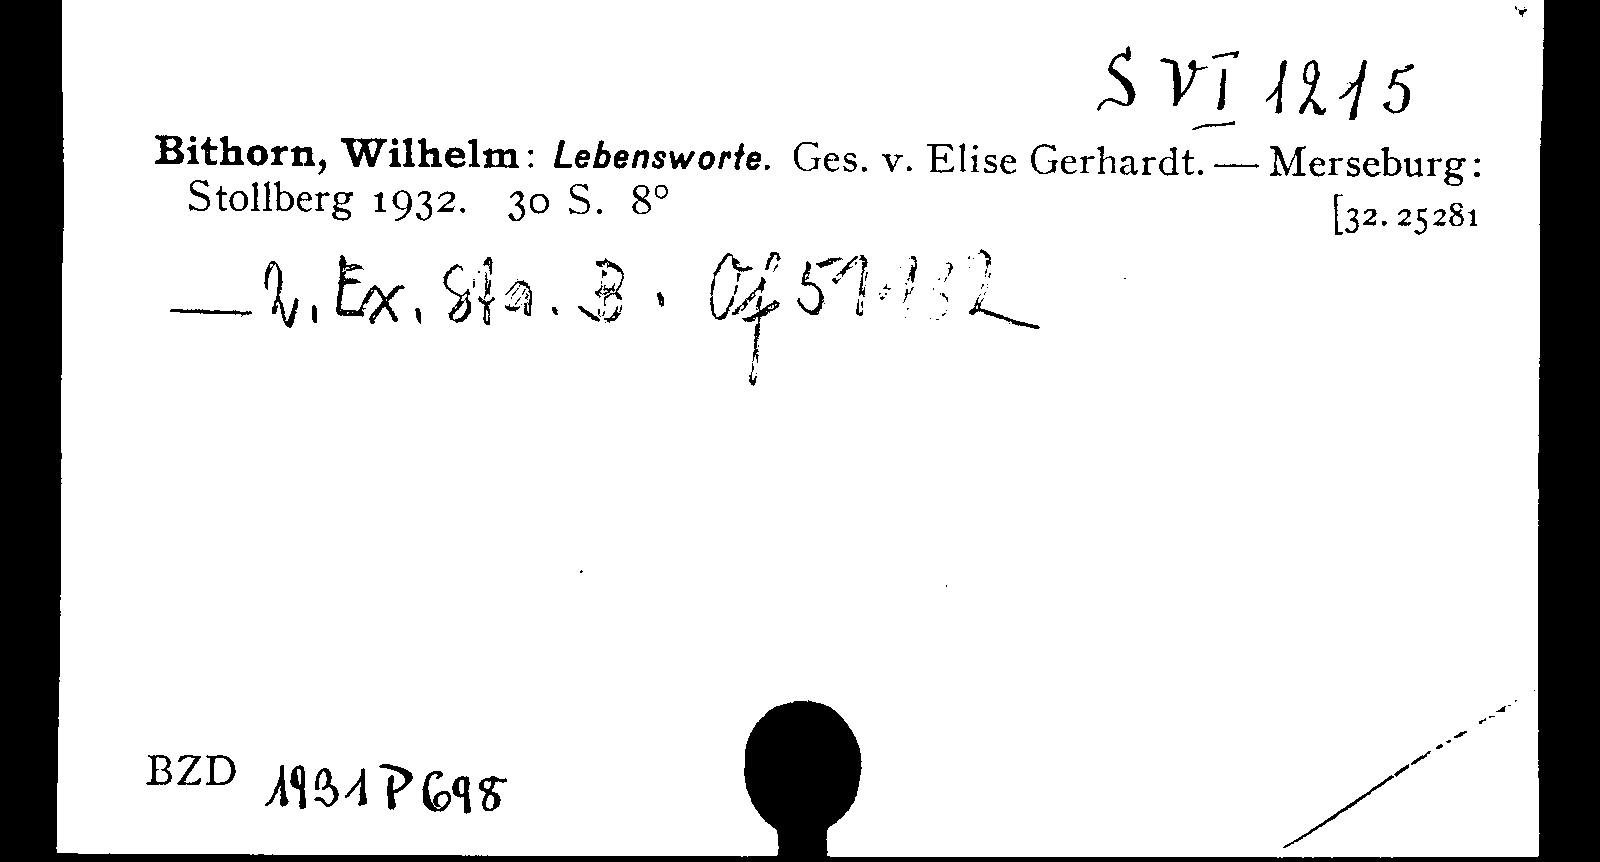 S VI 1215
Bithorn, Wilhelm: Lebensworte. Ges. v. Elise Gerhardt. — Merseburg:
Stollberg 1932. 30 S. 8°
[32. 25281
— 2. Ex. Sta. B. Of 59.132
BZD 1931 P 698